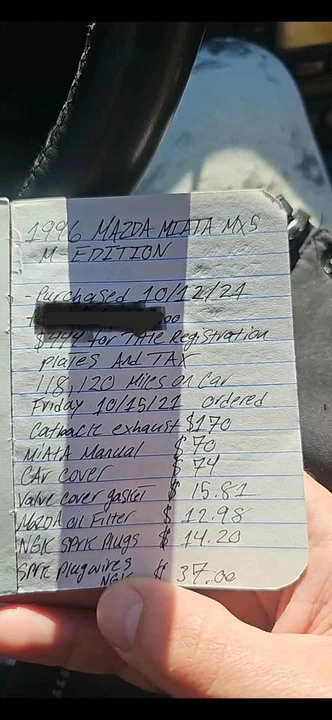 1996 MAZDA MIATA MX5
M-EDITION
- Purchased 10/12/21
00
$444 for Title Registration
plates And TAX
118,120 Miles on Car
Friday 10/15/21 ordered
Catback exhaust $170
MIATA Manual $70
CAr cover $74
Valve cover gasket $15.81
MAZDA oil Filter $12.98
NGK SPrK Plugs $14.20
SPrK Plugwires $37.00
NGK